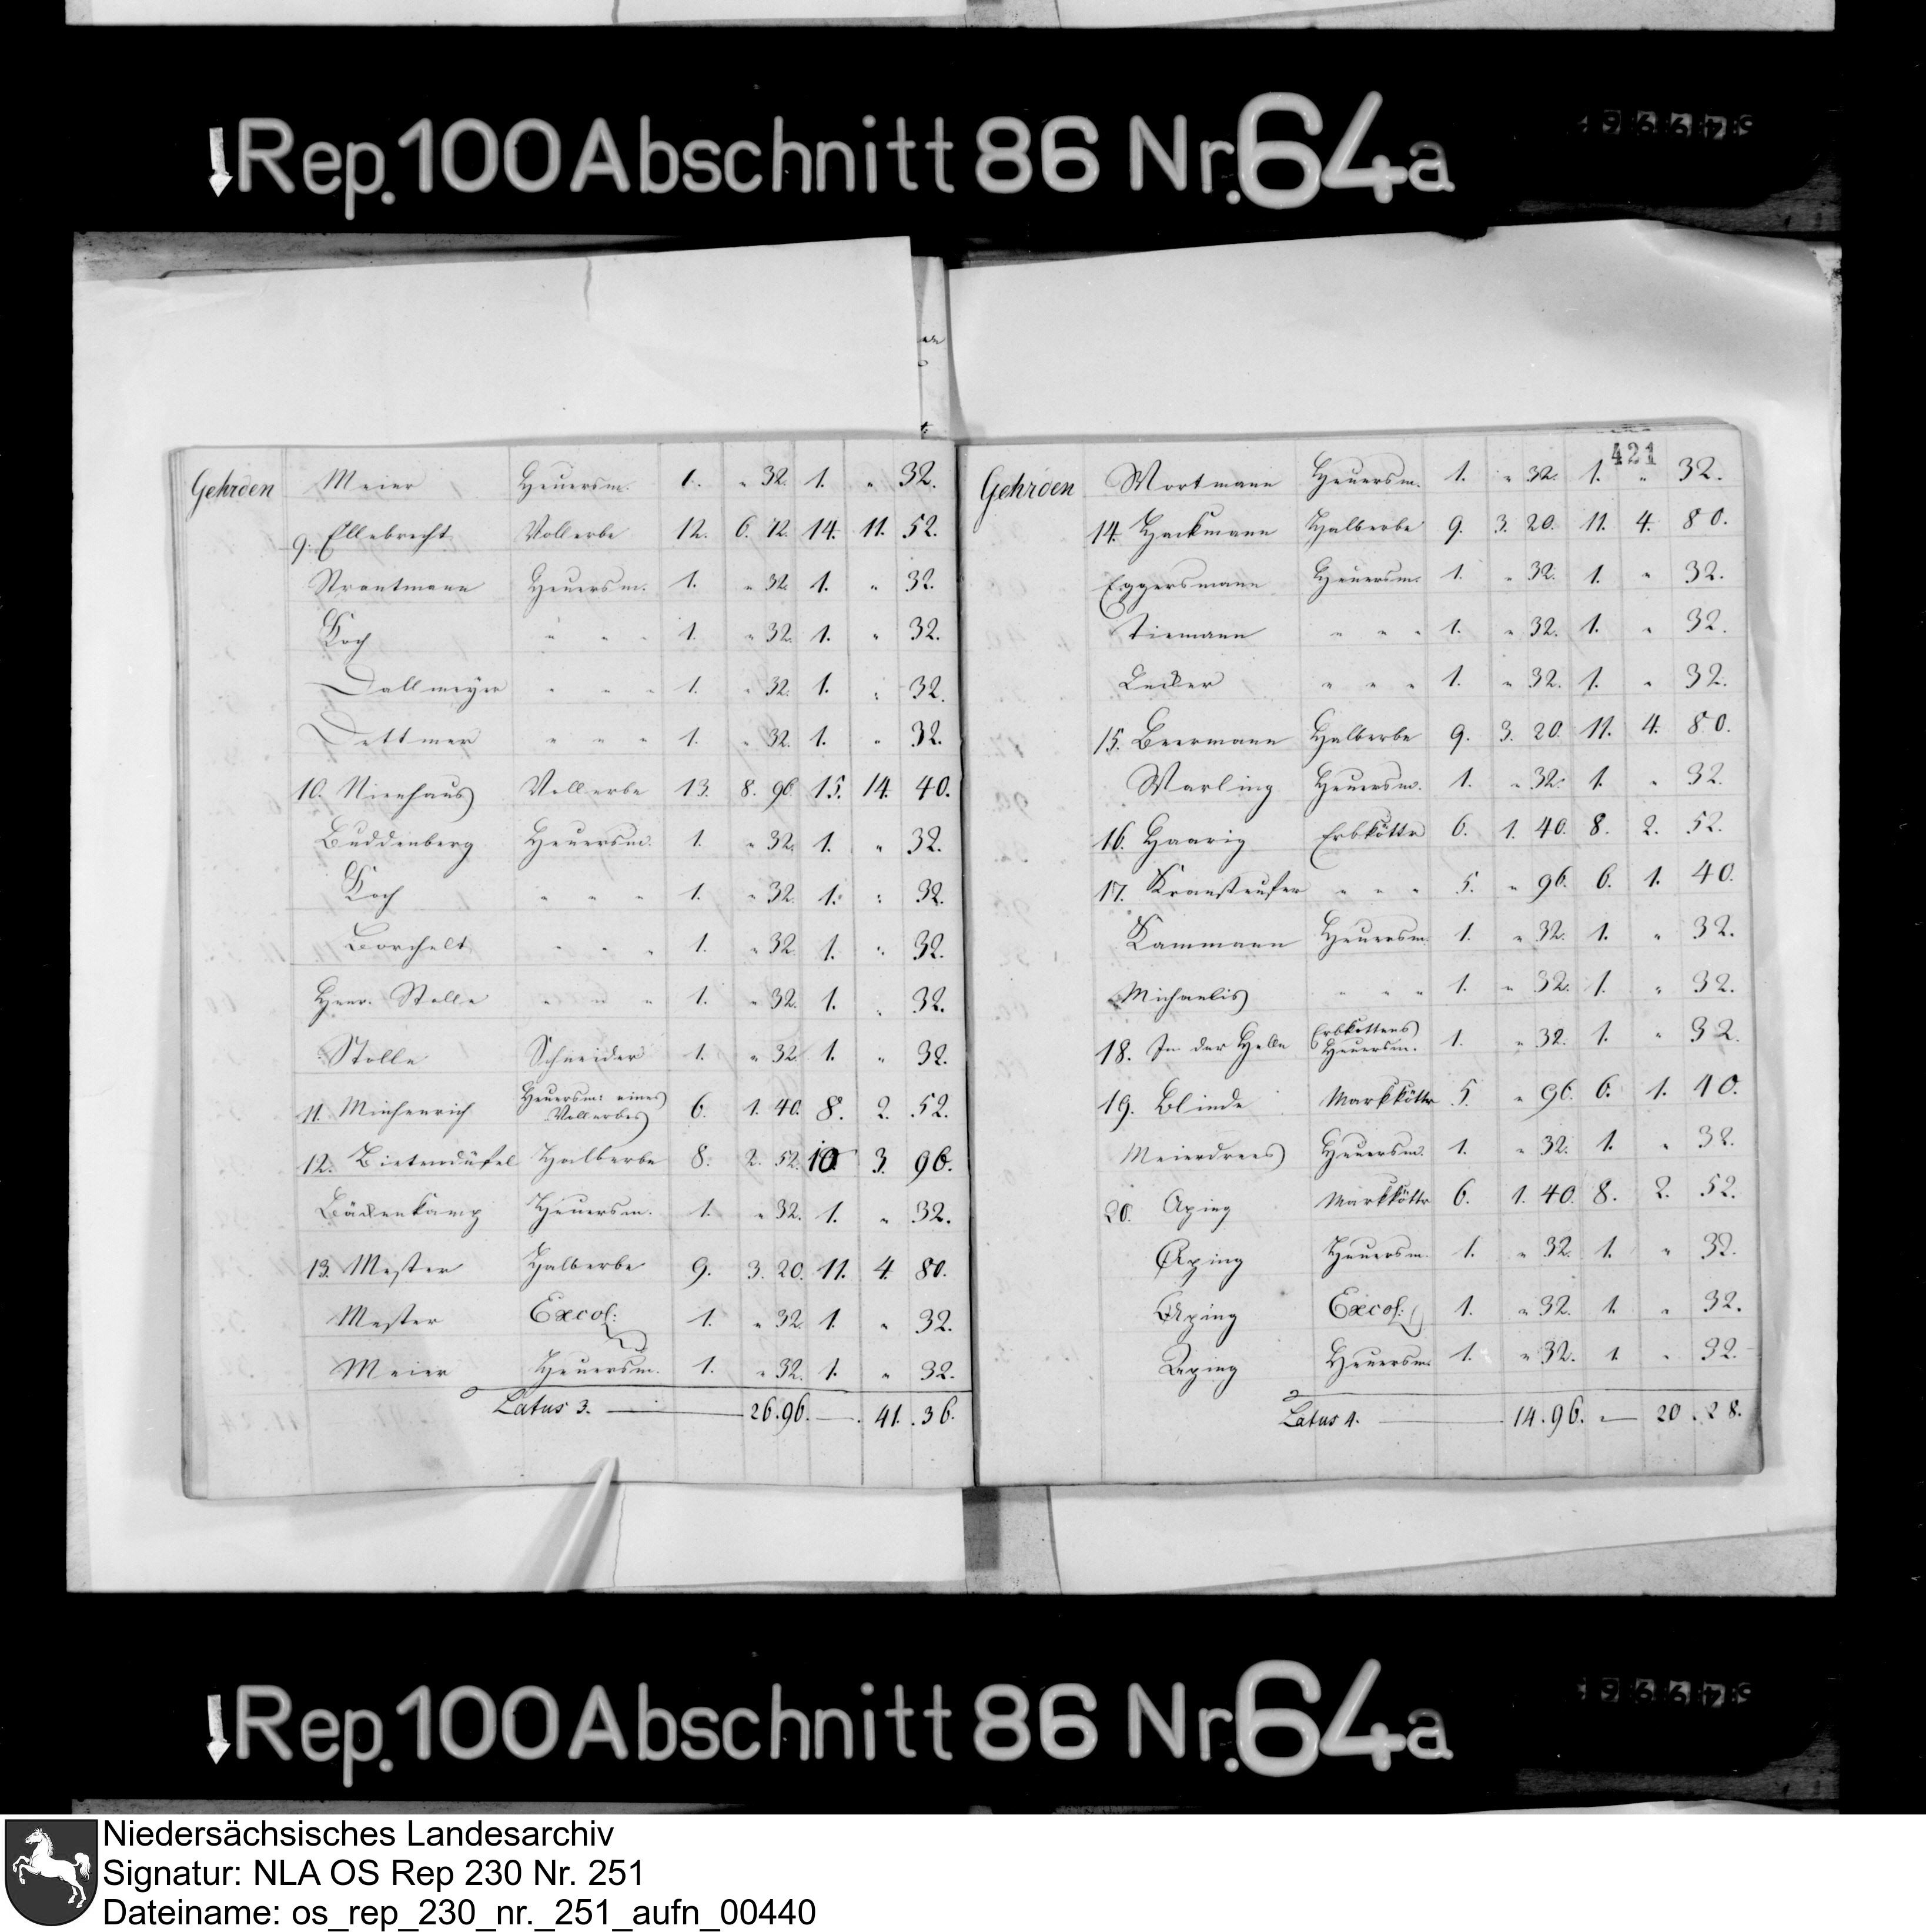 Rep. 100 Abschnitt 86 Nr. 64a
Gehrden Meier Heuersm. 1. " 32. 1. " 32.
9. Ellebrecht Vollerbe 12. 6. 12. 14. 11. 52.
Strautmann Heuersm. 1. " 32. 1. " 32.
Koch " " " 1. " 32. 1. " 32.
Dallmeyer " " " 1. " 32. 1. " 32.
Dettmer " " " 1. " 32. 1. " 32.
10. Nienhaus Vollerbe 13. 8. 96. 15. 14. 40.
Buddenberg Heuersm. 1. " 32. 1. " 32.
Koch " " " 1. " 32. 1. " 32.
Borchelt " " " 1. " 32. 1. " 32.
Henr. Stolle " " " 1. " 32. 1. " 32.
Stolle Schneider 1. " 32. 1. " 32.
11. Heuersm: eines Vollerbes 6. 1. 40. 8. 2. 52.
12. Bietendüfel Halberbe 8. 2. 52. 10 3. 96.
Bäckenkamp Heuersm. 1. " 32. 1. " 32.
13. Mester Halberbe 9. 3. 20. 11. 4. 80.
Mester Excol: 1. " 32. 1. " 32.
Meier Heuersm. 1. " 32. 1. " 32.
Latus 3. 26. 96. 41. 36.
421
Gehrden Wortmann Heuersm. 1. " 32. 1. " 32.
14. Hackmann Halberbe 9. 3. 20. 11. 4. 80.
Eggersmann Heuersm. 1. " 32. 1. " 32.
Tiemann " " " 1. " 32. 1. " 32.
Lecker " " " 1. " 32. 1. " 32.
15. Beermann Halberbe 9. 3. 20. 11. 4. 80.
Warling Heuersm. 1. " 32. 1. " 32.
16. Haarig Erbkötter 6. 1. 40. 8. 2. 52.
17. " " " 5. " 96. 6. 1. 40.
Kammann Heuersm. 1. " 32. 1. " 32.
Michaelis " " " 1. " 32. 1. " 32.
18. In der Helle Erbkottens Heuersm. 1. " 32. 1. " 32.
19. Blinde Markkötter 5. " 96. 6. 1. 40.
Meierdrees Heuersm. 1. " 32. 1. " 32.
20. Aping Markkötter 6. 1. 40. 8. 2. 52.
Aping Heuersm. 1. " 32. 1. " 32.
Aping Excol: 1. " 32. 1. " 32.
Aping Heuersm. 1. " 32. 1. " 32.
Latus 4. 14. 96. 20. 28.
Rep. 100 Abschnitt 86 Nr. 64a
Niedersächsisches Landesarchiv
Signatur: NLA OS Rep 230 Nr. 251
Dateiname: os_rep_230_nr._251_aufn_00440